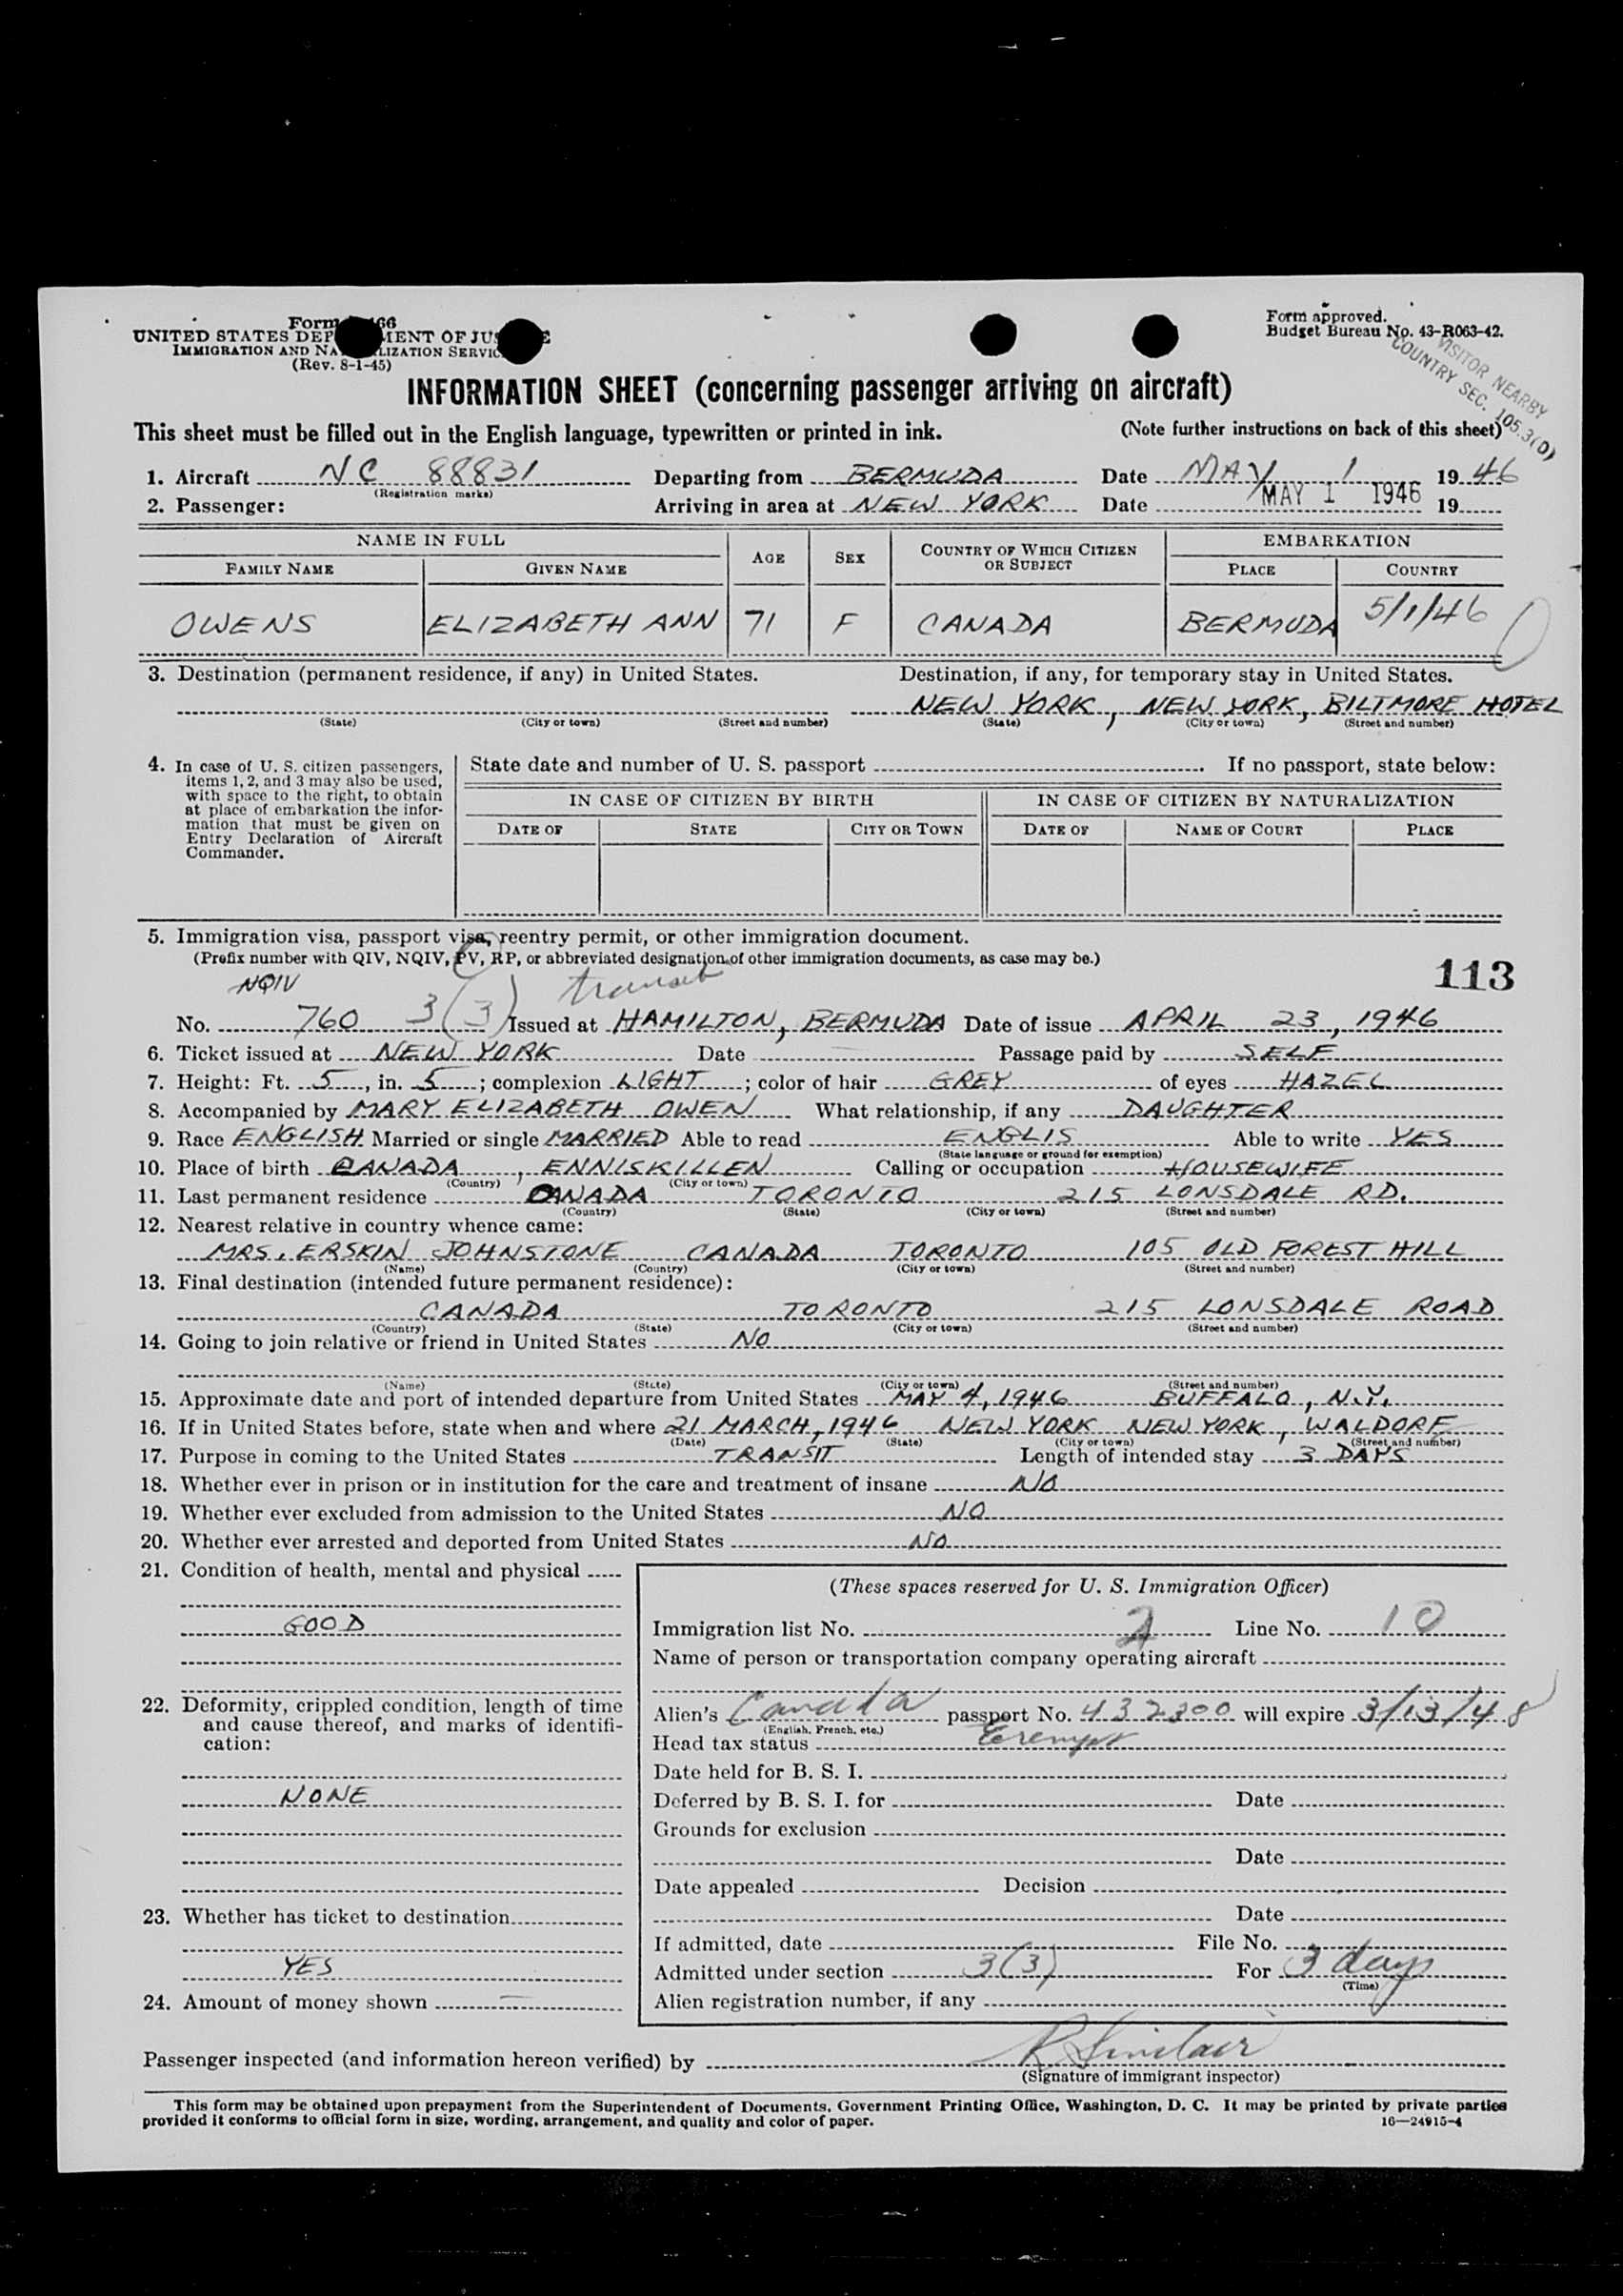 Form 66
UNITED STATES DEP MENT OF JUS E
IMMIGRATION AND NA LIZATION SERVIC
(Rev. 8-1-45)
Form approved.
Budget Bureau No. 43-R063-42.
VISITOR NEARBY
COUNTRY SEC. 105.3(D)
INFORMATION SHEET (concerning passenger arriving on aircraft)
This sheet must be filled out in the English language, typewritten or printed in ink. (Note further instructions on back of this sheet)
1. Aircraft NC 88831 Departing from BERMUDA Date MAY 1 1946
(Registration marks)
2. Passenger: Arriving in area at NEW YORK Date MAY 1 1946 19
NAME IN FULL AGE SEX COUNTRY OF WHICH CITIZEN OR SUBJECT EMBARKATION
FAMILY NAME GIVEN NAME PLACE COUNTRY
OWENS ELIZABETH ANN 71 F CANADA BERMUDA 5/1/46
3. Destination (permanent residence, if any) in United States. Destination, if any, for temporary stay in United States.
NEW YORK, NEW YORK, BILTMORE HOTEL
(State) (City or town) (Street and number) (State) (City or town) (Street and number)
4. In case of U. S. citizen passengers, items 1, 2, and 3 may also be used, with space to the right, to obtain at place of embarkation the information that must be given on Entry Declaration of Aircraft Commander.
State date and number of U. S. passport . If no passport, state below:
IN CASE OF CITIZEN BY BIRTH IN CASE OF CITIZEN BY NATURALIZATION
DATE OF STATE CITY OR TOWN DATE OF NAME OF COURT PLACE
5. Immigration visa, passport visa, reentry permit, or other immigration document.
(Prefix number with QIV, NQIV, PV, RP, or abbreviated designation of other immigration documents, as case may be.)
113
NQIV transit
No. 760 3(3) Issued at HAMILTON, BERMUDA Date of issue APRIL 23, 1946
6. Ticket issued at NEW YORK Date Passage paid by SELF
7. Height: Ft. 5, in. 5; complexion LIGHT; color of hair GREY of eyes HAZEL
8. Accompanied by MARY ELIZABETH OWEN What relationship, if any DAUGHTER
9. Race ENGLISH Married or single MARRIED Able to read ENGLIS Able to write YES
(State language or ground for exemption)
10. Place of birth CANADA, ENNISKILLEN Calling or occupation HOUSEWIFE
(Country) (City or town)
11. Last permanent residence CANADA TORONTO 215 LONSDALE RD.
(Country) (State) (City or town) (Street and number)
12. Nearest relative in country whence came:
MRS. ERSKIN JOHNSTONE CANADA TORONTO 105 OLD FOREST HILL
(Name) (Country) (City or town) (Street and number)
13. Final destination (intended future permanent residence):
CANADA TORONTO 215 LONSDALE ROAD
(Country) (State) (City or town) (Street and number)
14. Going to join relative or friend in United States NO
(Name) (State) (City or town) (Street and number)
15. Approximate date and port of intended departure from United States MAY 4, 1946 BUFFALO, N.Y.
16. If in United States before, state when and where 21 MARCH, 1946 NEW YORK NEW YORK, WALDORF
(Date) (State) (City or town) (Street and number)
17. Purpose in coming to the United States TRANSIT Length of intended stay 3 DAYS
18. Whether ever in prison or in institution for the care and treatment of insane NO
19. Whether ever excluded from admission to the United States NO
20. Whether ever arrested and deported from United States NO
21. Condition of health, mental and physical
GOOD
22. Deformity, crippled condition, length of time and cause thereof, and marks of identification:
NONE
23. Whether has ticket to destination
YES
24. Amount of money shown —
(These spaces reserved for U. S. Immigration Officer)
Immigration list No. 2 Line No. 10
Name of person or transportation company operating aircraft
Alien's Canada passport No. 432300 will expire 3/13/48
(English, French, etc.)
Head tax status Exempt
Date held for B. S. I.
Deferred by B. S. I. for Date
Grounds for exclusion
Date
Date appealed Decision
Date
If admitted, date File No.
Admitted under section 3(3) For 3 days
(Time)
Alien registration number, if any
Passenger inspected (and information hereon verified) by R Sinclair
(Signature of immigrant inspector)
This form may be obtained upon prepayment from the Superintendent of Documents, Government Printing Office, Washington, D. C. It may be printed by private parties
provided it conforms to official form in size, wording, arrangement, and quality and color of paper. 16—24915-4